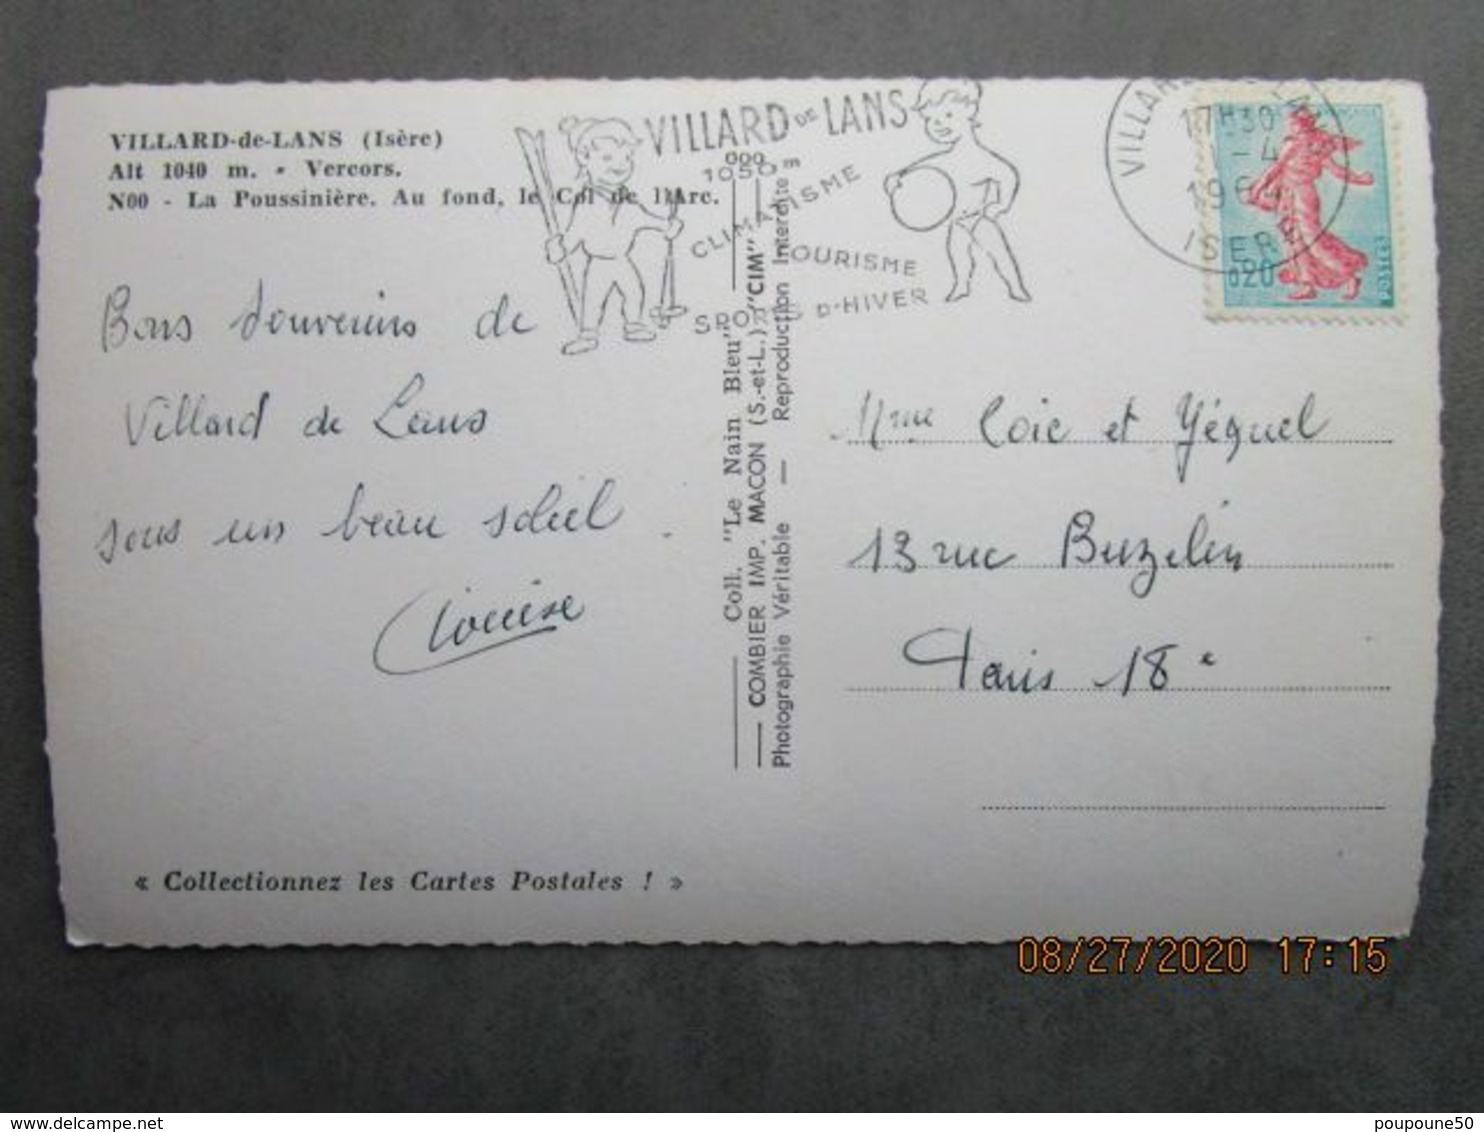 VILLARD-de-LANS (Isère)
Alt 1040 m. - Vercors.
N00 - La Poussinière. Au fond, le Col de l'Arc.
Bons Souvenirs de
Villard de Lans
sous un beau soleil.
Louise
« Collectionnez les Cartes Postales ! »
VILLARD DE LANS
1050 m
CLIMATISME
TOURISME
SPORTS D'HIVER
Coll. "Le Nain Bleu"
COMBIER IMP. MACON (S.-et-L.) "CIM"
Photographie Véritable — Reproduction Interdite
17H30
-4
1964
ISERE
0,20
POSTES
Mme Loie et Yéquel
13 rue Buzelin
Paris 18e
08/27/2020 17:15
poupoune50